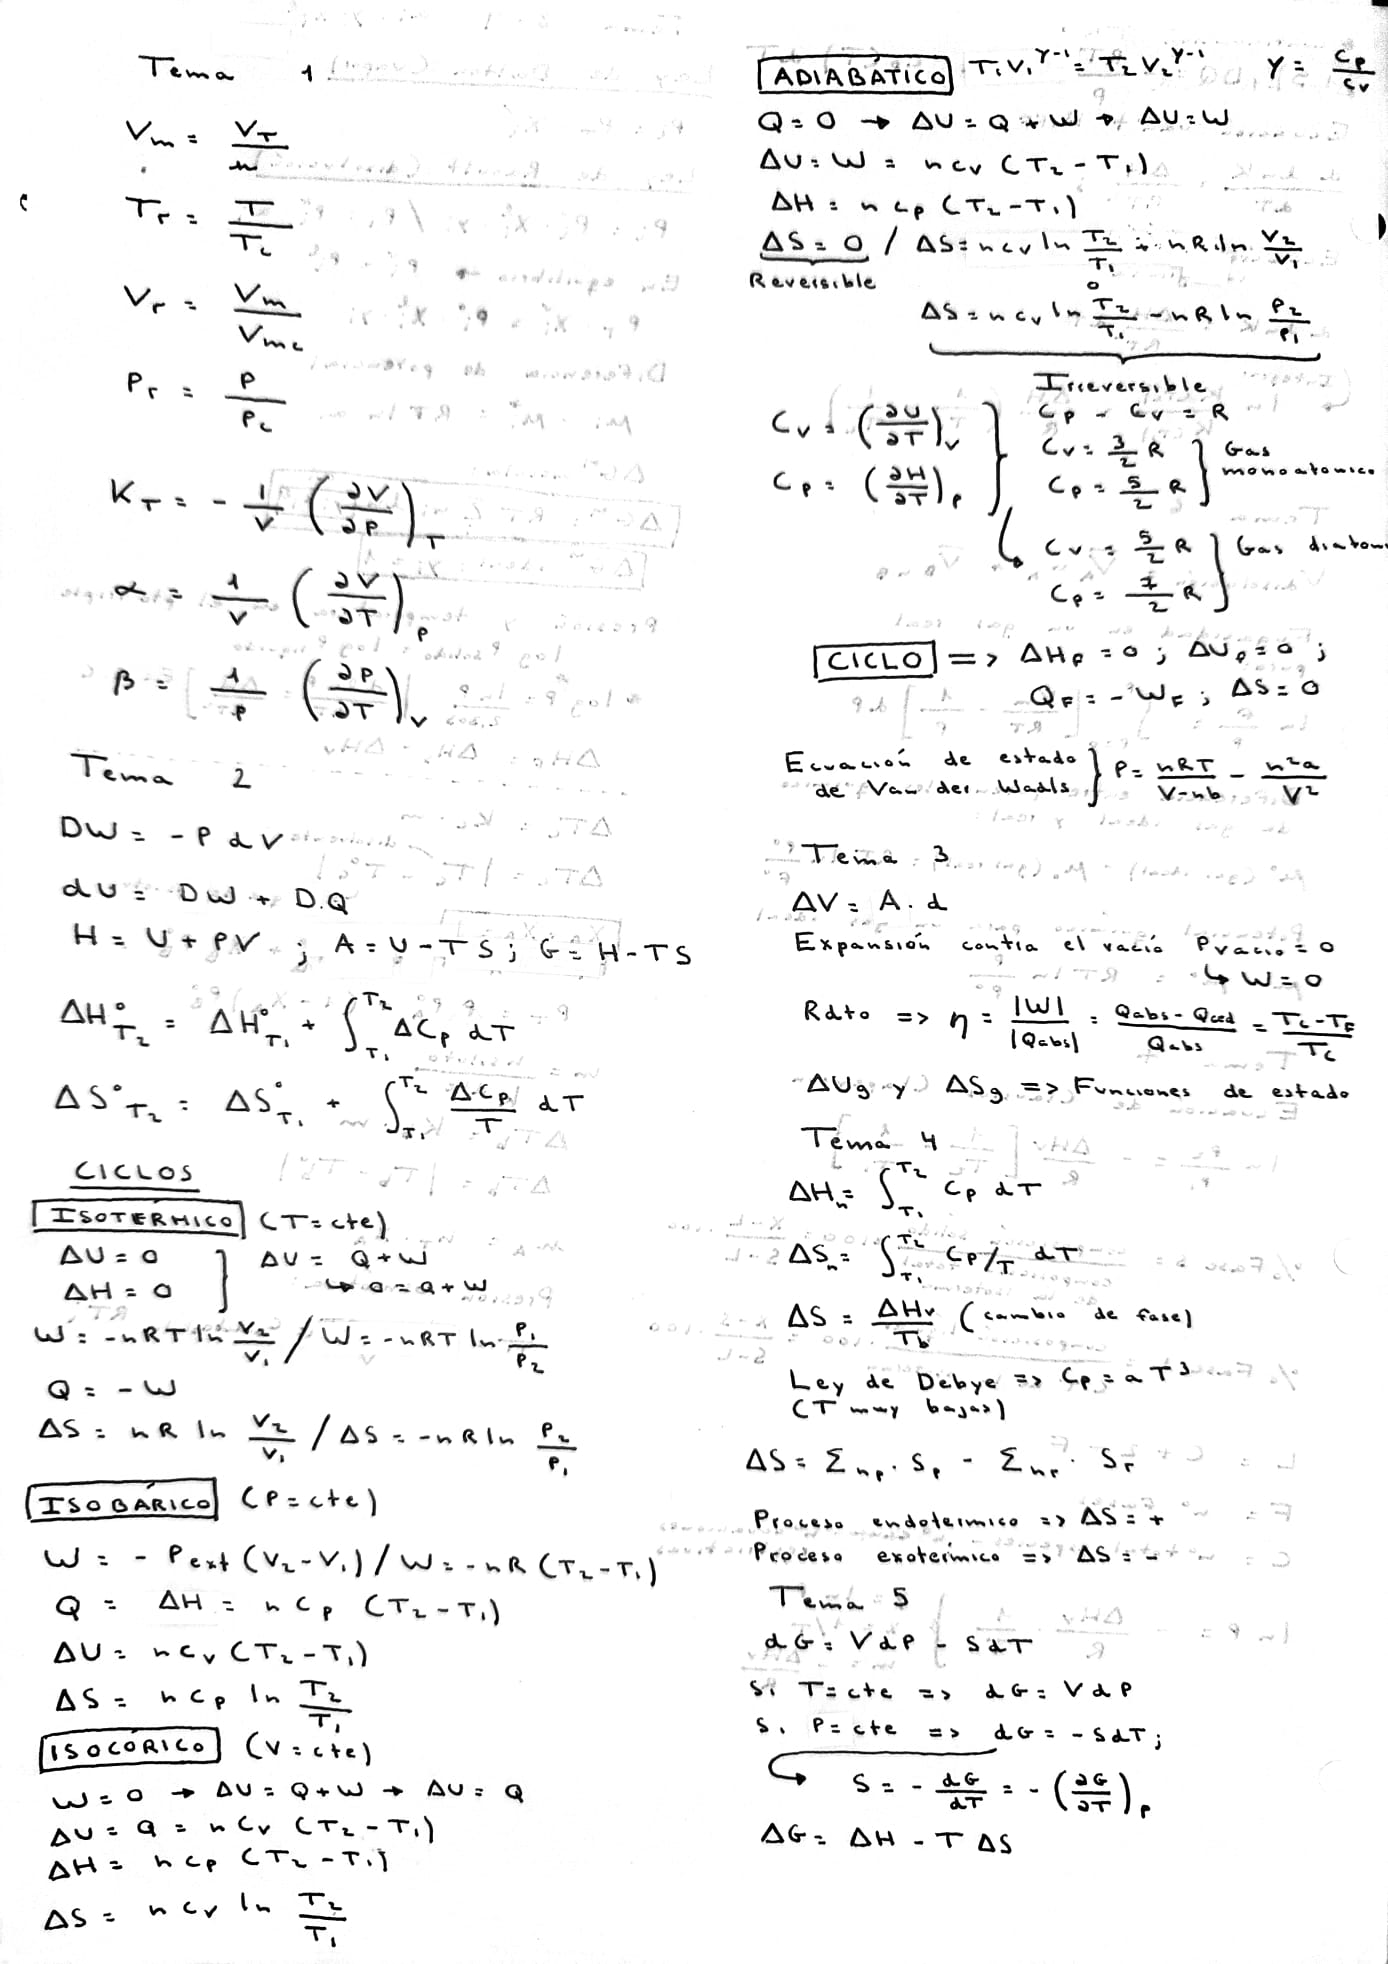 Tema 1
Vm = VT/n
Tr = T/Tc
Vr = Vm/Vmc
Pr = P/Pc
KT = - 1/V (∂V/∂P)T
α = 1/V (∂V/∂T)P
β = 1/P (∂P/∂T)V
Tema 2
DW = - P dV
dU = DW + DQ
H = U + PV ; A = U - TS ; G = H - TS
ΔH°T2 = ΔH°T1 + ∫T1^T2 ΔCp dT
ΔS°T2 = ΔS°T1 + ∫T1^T2 ΔCp/T dT
CICLOS
ISOTÉRMICO (T = cte)
ΔU = 0 } ΔU = Q + W
ΔH = 0 ↳ 0 = Q + W
W = -nRT ln V2/V1 / W = -nRT ln P1/P2
Q = - W
ΔS = nR ln V2/V1 / ΔS = -nR ln P2/P1
ISOBÁRICO (P = cte)
W = - Pext (V2 - V1) / W = -nR (T2 - T1)
Q = ΔH = n Cp (T2 - T1)
ΔU = n Cv (T2 - T1)
ΔS = n Cp ln T2/T1
ISOCÓRICO (V = cte)
W = 0 → ΔU = Q + W → ΔU = Q
ΔU = Q = n Cv (T2 - T1)
ΔH = n Cp (T2 - T1)
ΔS = n Cv ln T2/T1
ADIABÁTICO T1V1^γ-1 = T2V2^γ-1 γ = Cp/Cv
Q = 0 → ΔU = Q + W → ΔU = W
ΔU = W = n Cv (T2 - T1)
ΔH = n Cp (T2 - T1)
ΔS = 0 / ΔS = n Cv ln T2/T1 + nR ln V2/V1
Reversible o
ΔS = n Cv ln T2/T1 - nR ln P2/P1
Irreversible
Cv = (∂U/∂T)V } Cp - Cv = R
Cv = 3/2 R } Gas monoatomico
Cp = (∂H/∂T)P Cp = 5/2 R
↳ Cv = 5/2 R } Gas diatom
Cp = 7/2 R
CICLO => ΔHF = 0 ; ΔUF = 0 ;
QF = - WF ; ΔS = 0
Ecuación de estado } P = nRT/V-nb - n²a/V²
de Van der Waals
Tema 3
ΔV = A . d
Expansión contra el vacío Pvacio = 0
↳ W = 0
Rdto => η = |W|/|Qabs| = Qabs - Qced/Qabs = Tc - TF/Tc
ΔUg y ΔSg => Funciones de estado
Tema 4
ΔHn = ∫T1^T2 Cp dT
ΔSn = ∫T1^T2 Cp/T dT
ΔS = ΔHv/Tb (cambio de fase)
Ley de Debye => Cp = a T³
(T muy bajas)
ΔS = Σnp . Sp - Σnr . Sr
Proceso endotermico => ΔS = +
Proceso exotermico => ΔS = -
Tema 5
dG = VdP - SdT
Si T = cte => dG = VdP
Si P = cte => dG = -SdT ;
↳ S = - dG/dT = - (∂G/∂T)P
ΔG = ΔH - TΔS